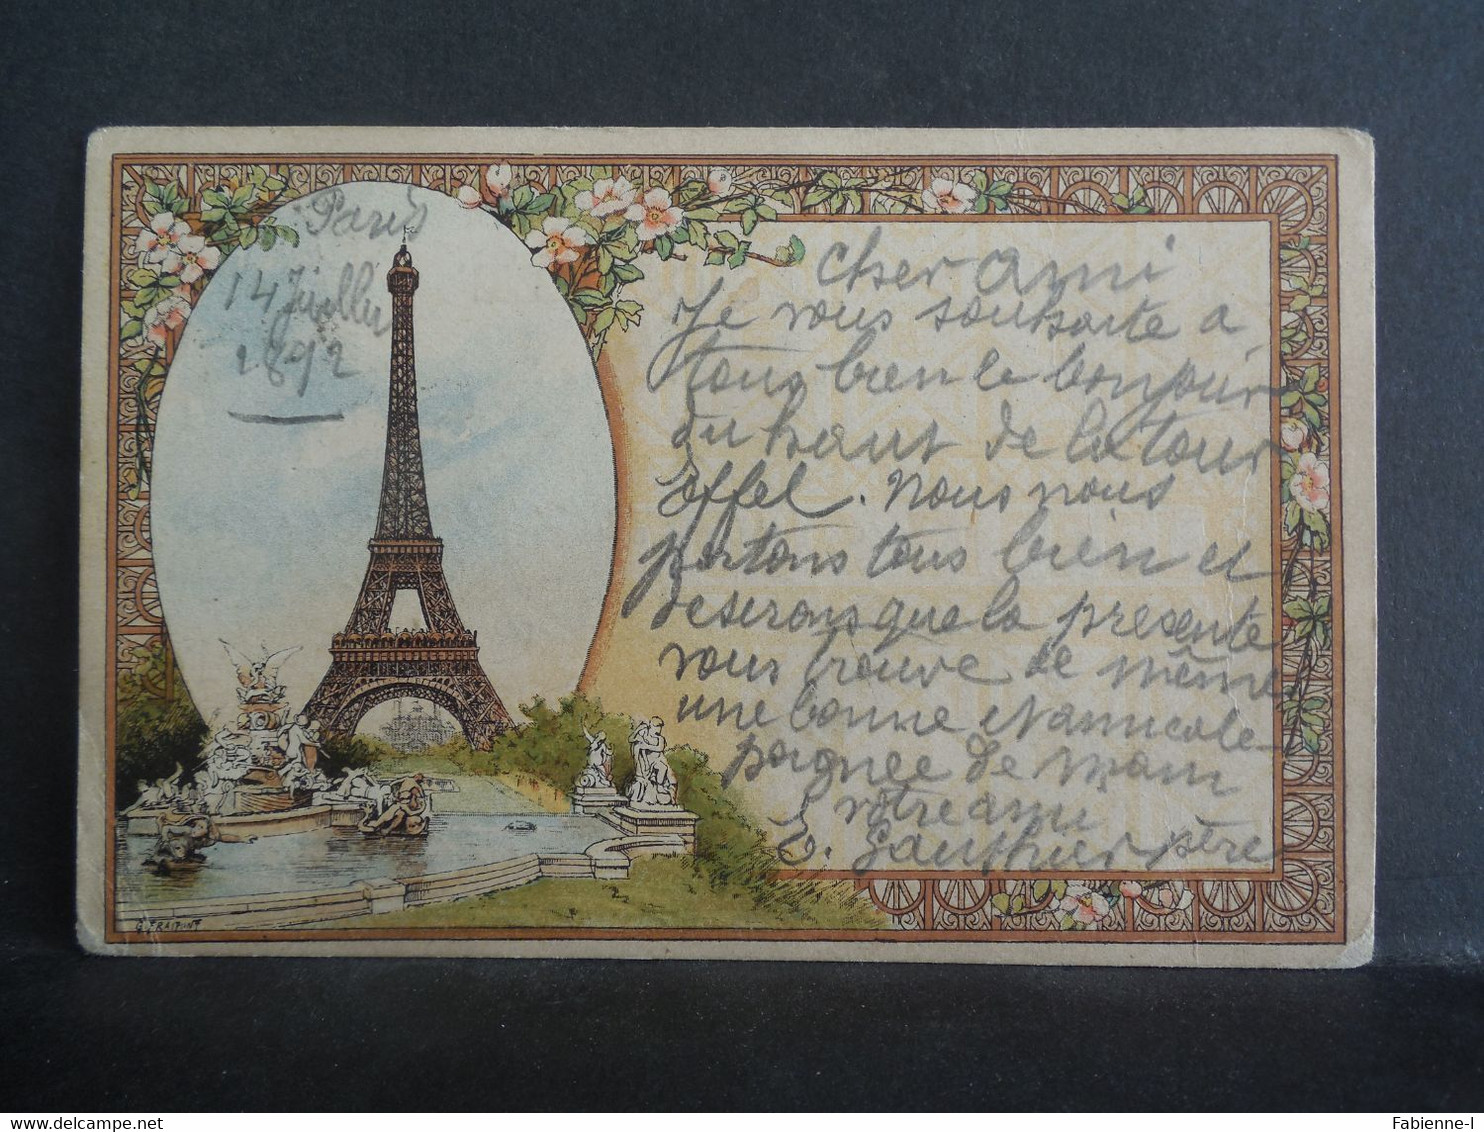 Paris
14 Juillier
1892
Cher Ami
Je vous souhaite a
tous bien le bonjour
du haut de la tour
Effel. Nous nous
portons tous bien et
deserons que la presente
vous trouve de même
une bonne et amicale
poignee de main
votre ami
E. Gauthier père
G. FRAIPONT
delcampe.net
Fabienne-I